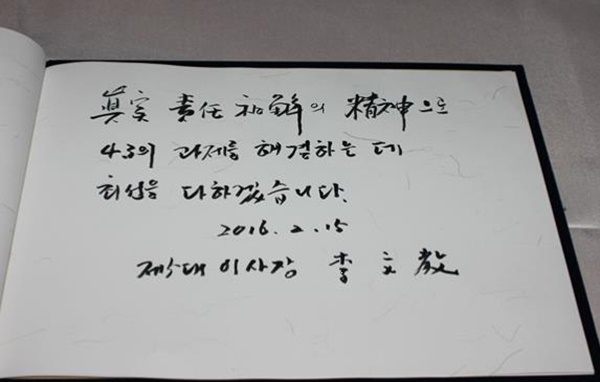 眞実 責任 和解의 精神으로
4·3의 과제를 해결하는 데
최선을 다하겠습니다.
2016. 2. 15
제5대 이사장 李文敎